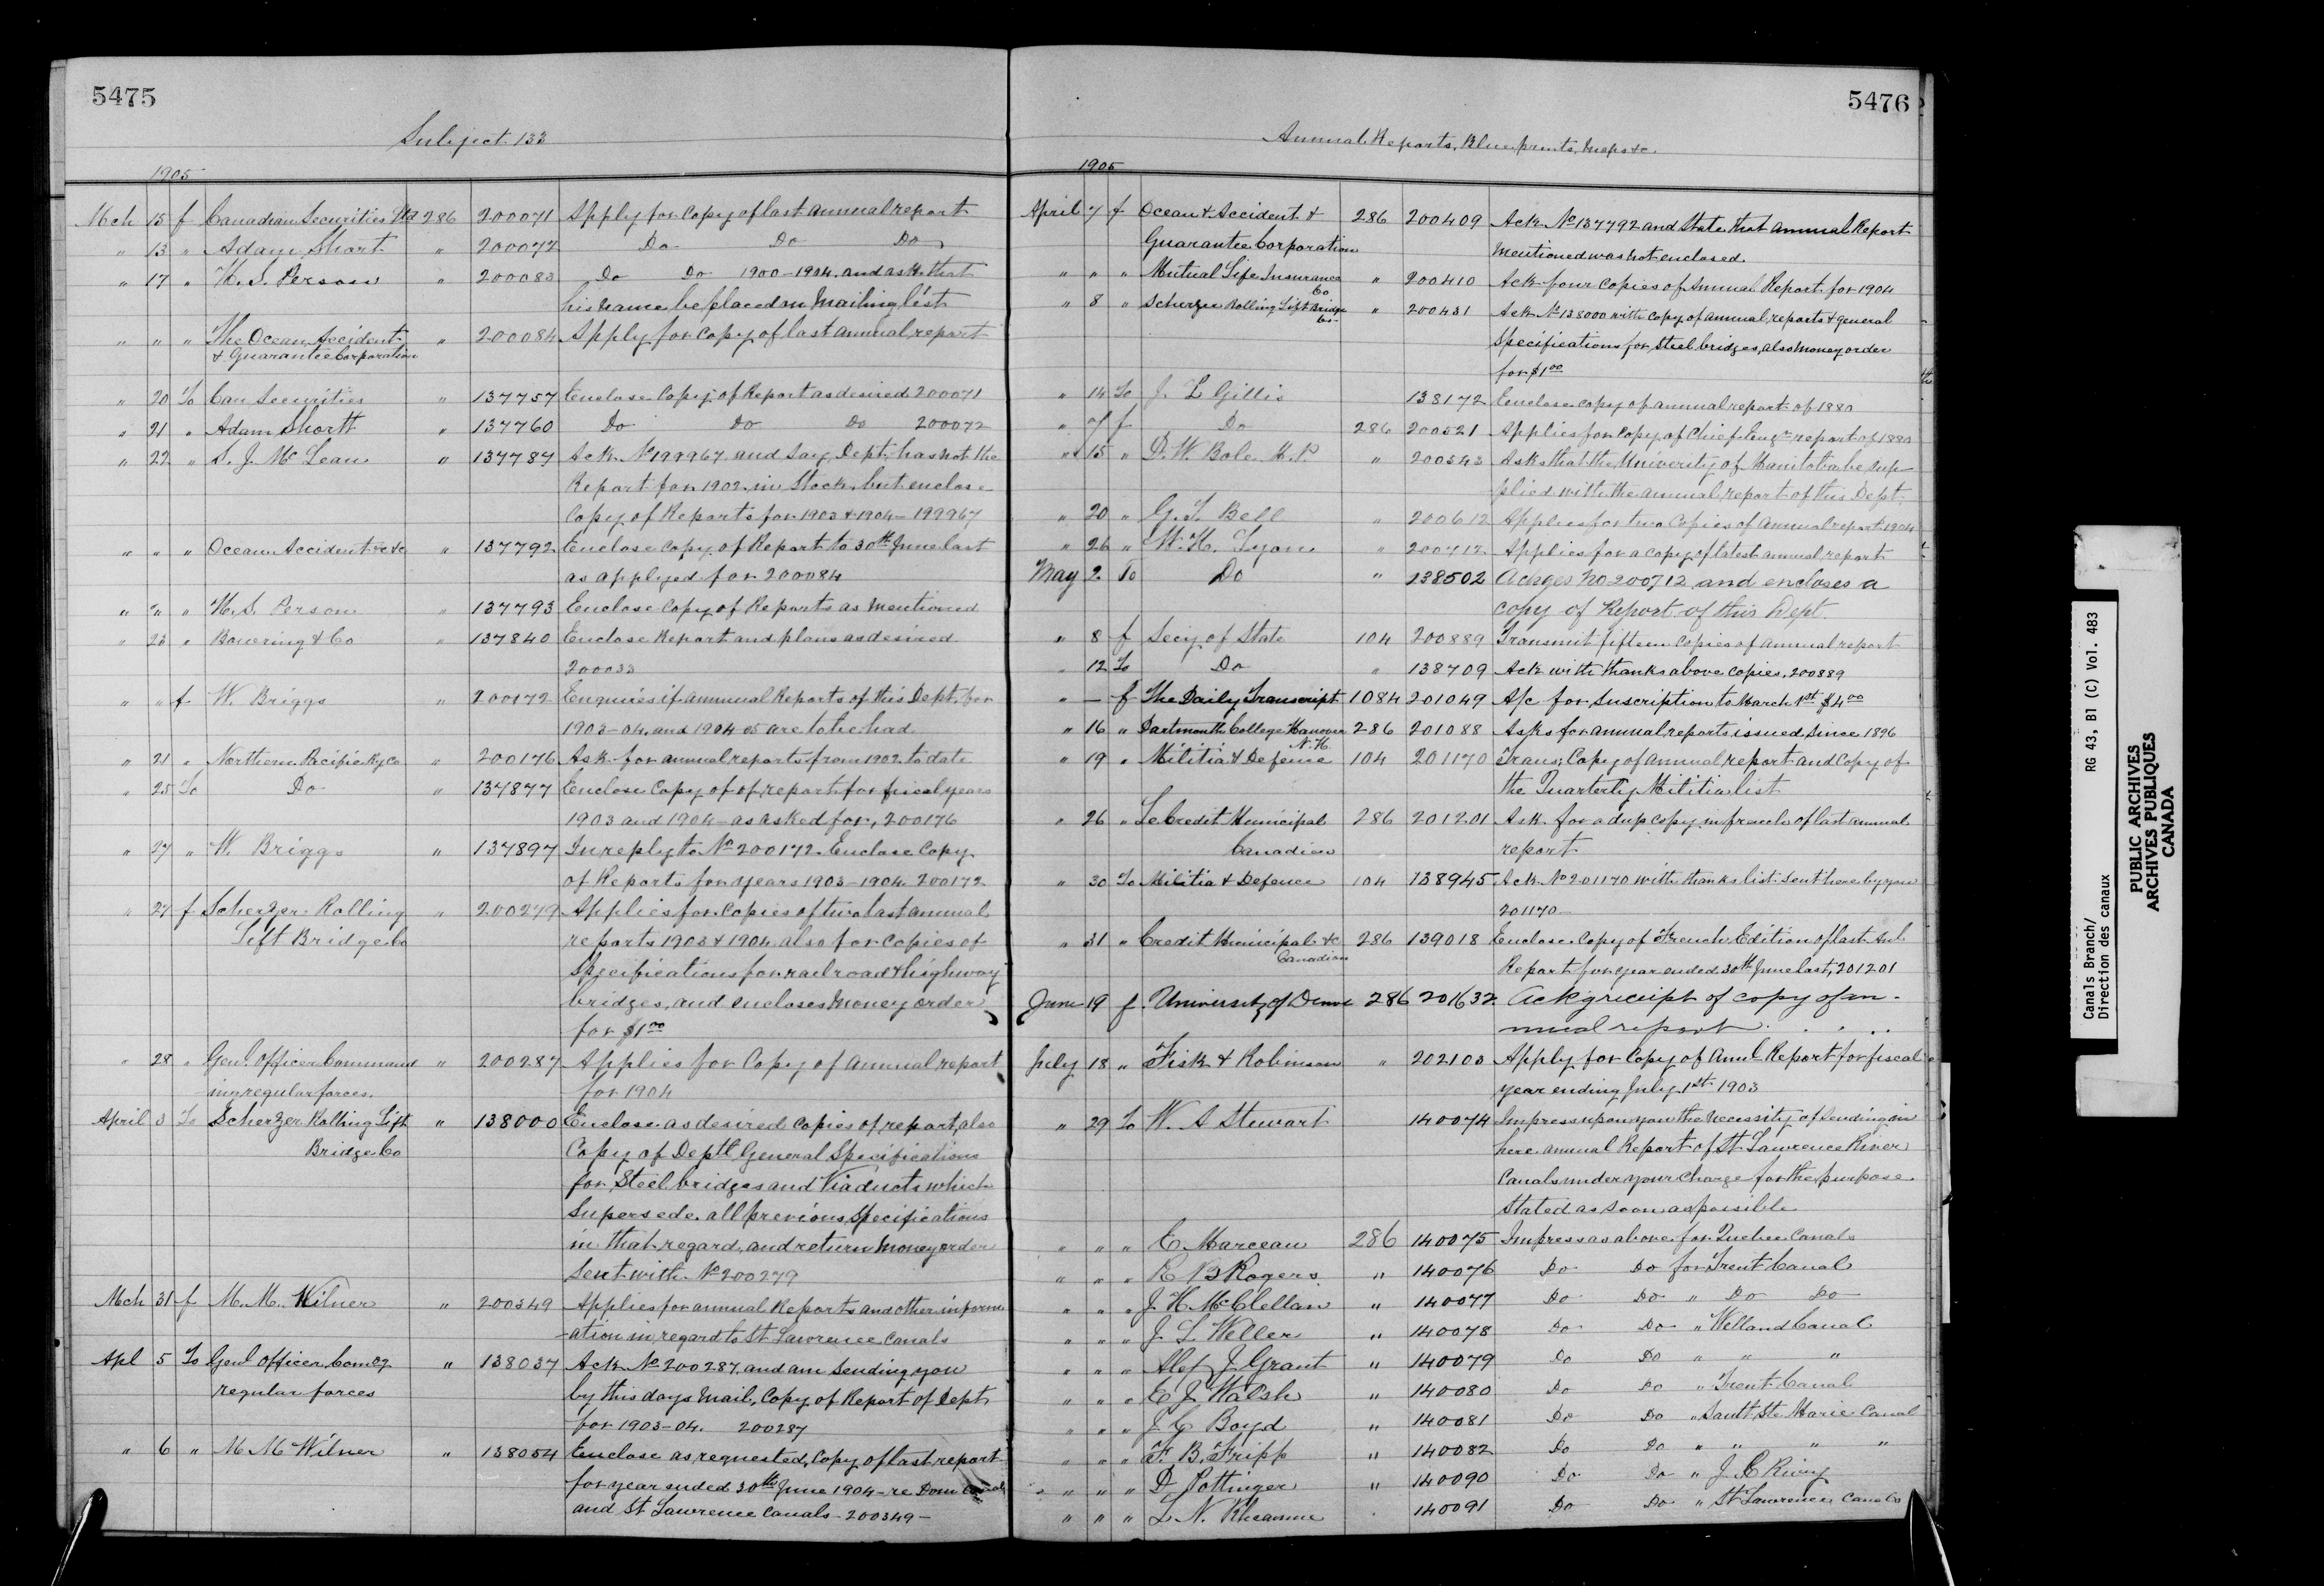 5475
Subject 133
1905
Mch 15 f Canadian Securities Ltd 286 200071 Apply for copy of last annual report
" 13 " Adam Short " 200072 Do Do Do
" 17 " H. S. Person " 200083 Do Do 1900-1904. and ask that
his name be placed on Mailing list
" " " The Ocean Accident " 200084 Apply for copy of last annual report
& Guarantee Corporation
" 20 To Can Securities " 137757 Enclose Copy of Report as desired 200071
" 21 " Adam Shortt " 137760 Do Do Do 200072
" 22 " S. J. McLean " 137787 Ack No 199967 and say Dept. has not the
Report for 1902 in Stock, but enclose
Copy of Reports for 1903 & 1904 - 199967
" " " Ocean Accident &c &c " 137792 Enclose Copy of Report to 30th June last
as applyed for 200084
" " " H. S. Person " 137793 Enclose Copy of Reports as mentioned
" 23 " Bowering & Co " 137840 Enclose Report and plans as desired
200033
" " f W. Briggs " 200172 Enquires if annual Reports of this Dept. for
1903-04. and 1904 05 are to be had
" 21 " Northern Pacific Ry Co " 200176 Ask for annual reports from 1902 to date
" 25 To Do " 137877 Enclose Copy of of report for fiscal years
1903 and 1904 - as asked for, 200176
" 27 " W. Briggs " 137897 In reply to No 200172. Enclose Copy
of Reports for years 1903-1904. 200172
" 27 f Scherzer Rolling " 200279 Applies for Copies of two last annual
Lift Bridge Co reports 1903 & 1904 also for copies of
Specifications for railroad & highway
bridges, and encloses money order
for $1.00
" 28 " Genl. Officer Command " 200287 Applies for Copy of annual report
ing regular forces. for 1904
April 3 To Scherzer Rolling Lift " 138000 Enclose as desired copies of report, also
Bridge Co Copy of Deptl. General Specifications
for Steel bridges and Viaducts which
Supersede all previous Specifications
in that regard, and return Money order
Sent with No 200279
Mch 31 f M. M. Wilner " 200349 Applies for annual Reports and other inform
-ation in regard to St Lawrence Canals
Apl 5 To Genl Officer Comdg " 138037 Ack No 200287. and am sending you
regular forces by this days mail, Copy of Report of Dept
for 1903-04. 200287
" 6 " M M Wilner " 138054 Enclose as requested, Copy of last report
for year ended 30th June 1904 - re Dom Canals
and St Lawrence Canals - 200349 -
5476
Annual Reports, Blue prints, Maps &c.
1905
April 7 f Ocean & Accident & 286 200409 Ack No 137792 and State that annual Report
Guarantee Corporation Mentioned was not enclosed.
" " " Mutual Life Insurance Co " 200410 Ack four copies of Annual Report for 1904
" 8 " Scherzer Rolling Lift Bridge Co " 200431 Ack No 138000 with copy of annual reports & general
Specifications for steel bridges, also money order
for $1.00
" 14 To J. L Gillis 138172 Enclose copy of annual report of 1880
" 7 f Do 286 200521 Applies for Copy of Chief Engr report of 1880
" 15 " D. W. Bole M.P. " 200543 Asks that the Univerity of Manitoba be sup
plied with the annual report of this Dept.
" 20 " G. T. Bell " 200612 Applies for two copies of annual report 1904
" 26 " W. H. Lyon " 200712 Applies for a copy of latest annual report
May 2 To Do " 138502 Ackges No 200712 and encloses a
copy of Report of this Dept.
" 8 f Secy of State 104 200889 Transmit fifteen copies of annual report
" 12 To Do " 138709 Ack with thanks above copies. 200889
" — f The Daily Transcript 1084 201049 A/c for suscription to March 1st $4.00
" 16 " Dartmouth College Hanover N.H. 286 201088 Asks for annual reports issued since 1896
" 19 " Militia & Defence 104 201170 Trans; Copy of annual report and Copy of
the Quarterly Militia list
" 26 " Le Credit Municipal 286 201201 Ask for a dup copy in french of last annual
Canadien report
" 30 To Militia & Defence 104 138945 Ack No 201170 with thanks list sent here by you
201170-
" 31 " Credit Municipal &c 286 139018 Enclose Copy of French Edition of last Anl.
Canadien Report for year ended 30th June last, 201201
June 19 f University of Denve 286 201632 Ackg receipt of copy of an-
nual report . . . .
July 18 " Fisk & Robinson " 202103 Apply for Copy of Anul Report for fiscal
year ending July 1st 1903
" 29 To W. A Stewart 140074 Impress upon you the necessity of sending in
here annual Report of St Lawrence River
Canals under your charge for the purpose
stated as soon as possible
" " " E. Marceau 286 140075 Impress as above for Quebec Canals
" " " R B Rogers " 140076 Do Do for Trent Canal
" " " J. H. McClellan " 140077 Do Do " Do Do
" " " J. L Weller " 140078 Do Do " Welland Canal
" " " Alex J. Grant " 140079 Do Do " " "
" " " E J Walsh " 140080 Do Do " Trent Canal
" " " J. C Boyd " 140081 Do Do " Sault Ste Marie Canal
" " " F. B. Fripp " 140082 Do Do " " " "
" " " D. Pottinger " 140090 Do Do " J. C
" " " L N. Rheaume 140091 Do Do " St Lawrence Canals
Canals Branch/
Direction des canaux
RG 43, B1 (C) Vol. 483
PUBLIC ARCHIVES
ARCHIVES PUBLIQUES
CANADA